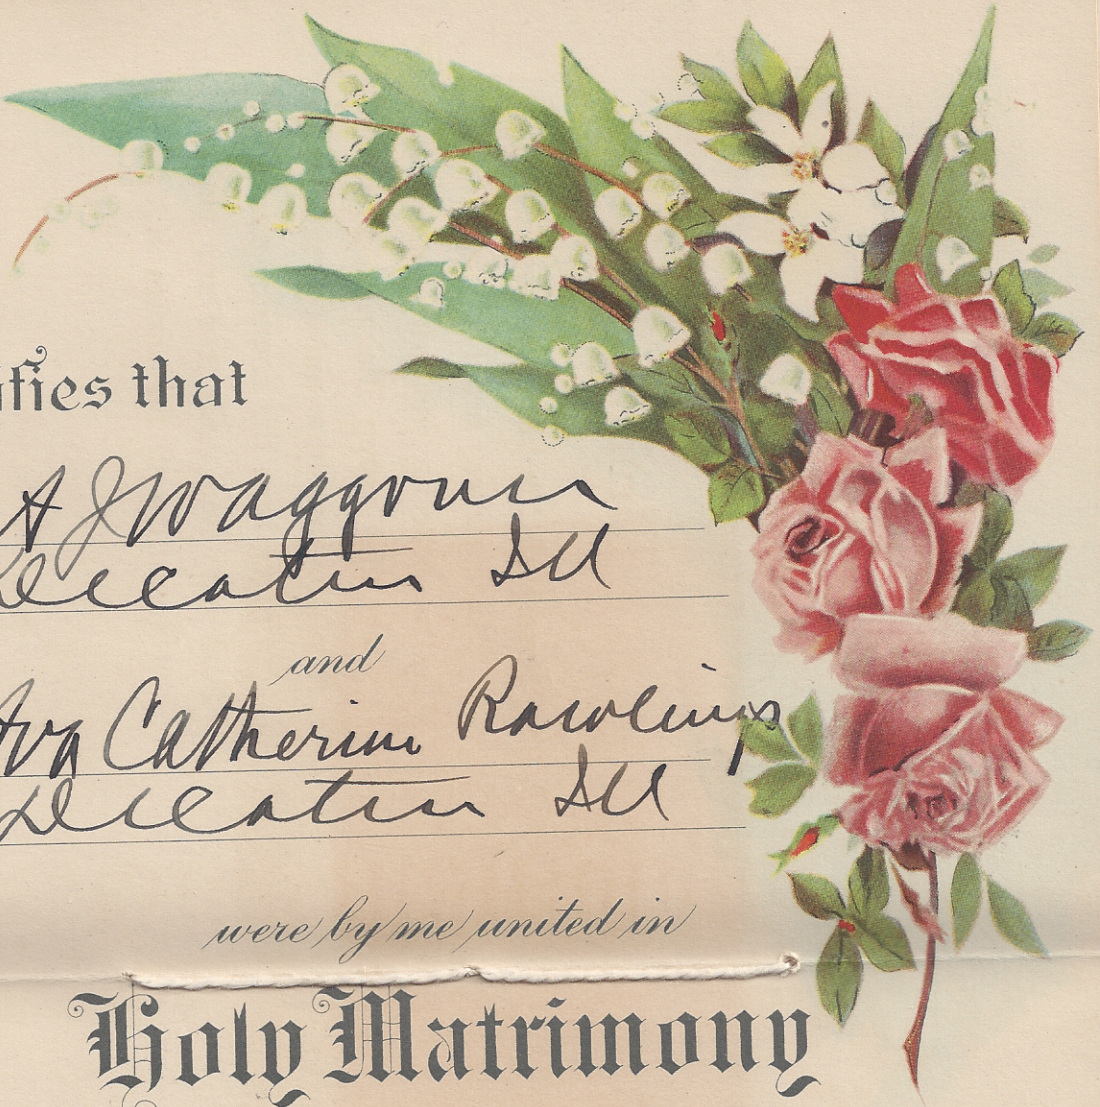 ifies that
A J Waggoner
Decatur Ill
and
Iva Catherine Rawlings
Decatur Ill
were by me united in
Holy Matrimony